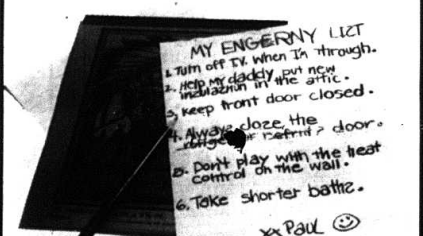 MY ENGERNY LIZT
1. Turn off T.V. when I'm through.
2. Help My daddy put new
inzulazun in the attic.
3. Keep front door closed.
4. Always cloze the
door.
5. Don't play with the heat
control on the wall.
6. Take shorter bathz.
xx PAUL